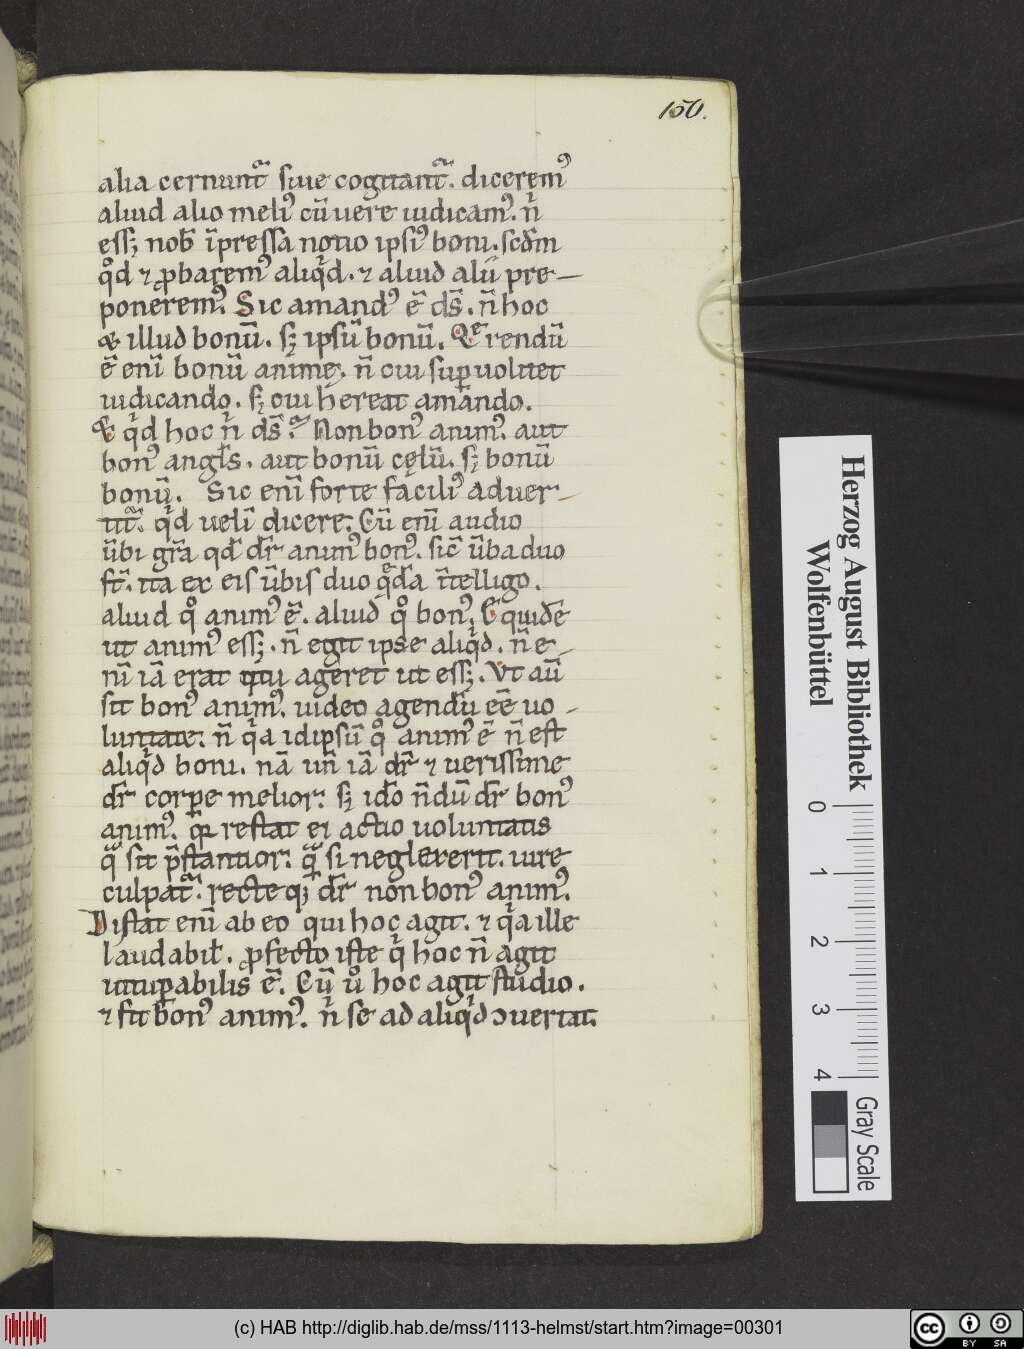 150.
alia cernunt᷑ siue cogitant᷑. diceremꝰ
aliud alio meliꝰ cū uere iudicamꝰ. nͥ
essꝫ nob̄ īpressa notio ipsiꝰ boni. scd̄m
qͦd ⁊ ꝓbaremꝰ aliqͥd. ⁊ aliud alii pre-
poneremꝰ. Sic amandꝰ ē ds̄. n̄ hoc
& illud bonū. sꝫ ipsū bonū. Q̄rendū
ē enī bonū animę. n̄ cui suꝑuolitet
iudicando. sꝫ cui hereat amando.
& qͥd hoc nͥ ds̄. Non bonꝰ animꝰ. aut
bonꝰ angl̄s. aut bonū cęlū. sꝫ bonū
bonū. Sic enī forte faciliꝰ aduer-
tit᷑. qͥd uelī dicere. Cū enī audio
ūbi gr̄a qd̄ dr̄ animꝰ bonꝰ. sic̄ ūba duo
st̄. ita ex eis ūbis duo q̄dā ītelligo.
aliud qͦ animꝰ ē. aliud qͦ bonꝰ. Et quidē
ut animꝰ essꝫ. n̄ egit ipse aliqͥd. n̄ e-
nī iā erat qui ageret ut essꝫ. Vt aū
sit bonꝰ animꝰ. uideo agendū eē uo-
luntate. n̄ qͥa idipsū qͦ animꝰ ē n̄ est
aliqͥd boni. nā un̄ iā dr̄ ⁊ uerissime
dr̄ corpe melior. sꝫ idō n̄dū dr̄ bonꝰ
animꝰ. qꝛ restat ei actio uoluntatis
qᷓ sit p̄stantior. qᷓ si neglexerit. iure
culpat᷑. recte qꝫ dr̄ non bonꝰ animꝰ.
Distat enī ab eo qui hoc agit. ⁊ qͥa ille
laudabil̄. ꝓfecto iste qͥ hoc n̄ agit
uituꝑabilis ē. Cū uͦ hoc agit studio.
⁊ fit bonꝰ animꝰ. nͥ se ad aliqͥd ꝯuertat.
Herzog August Bibliothek
Wolfenbüttel
0 1 2 3 4
Gray Scale
(c) HAB http://diglib.hab.de/mss/1113-helmst/start.htm?image=00301
cc BY SA